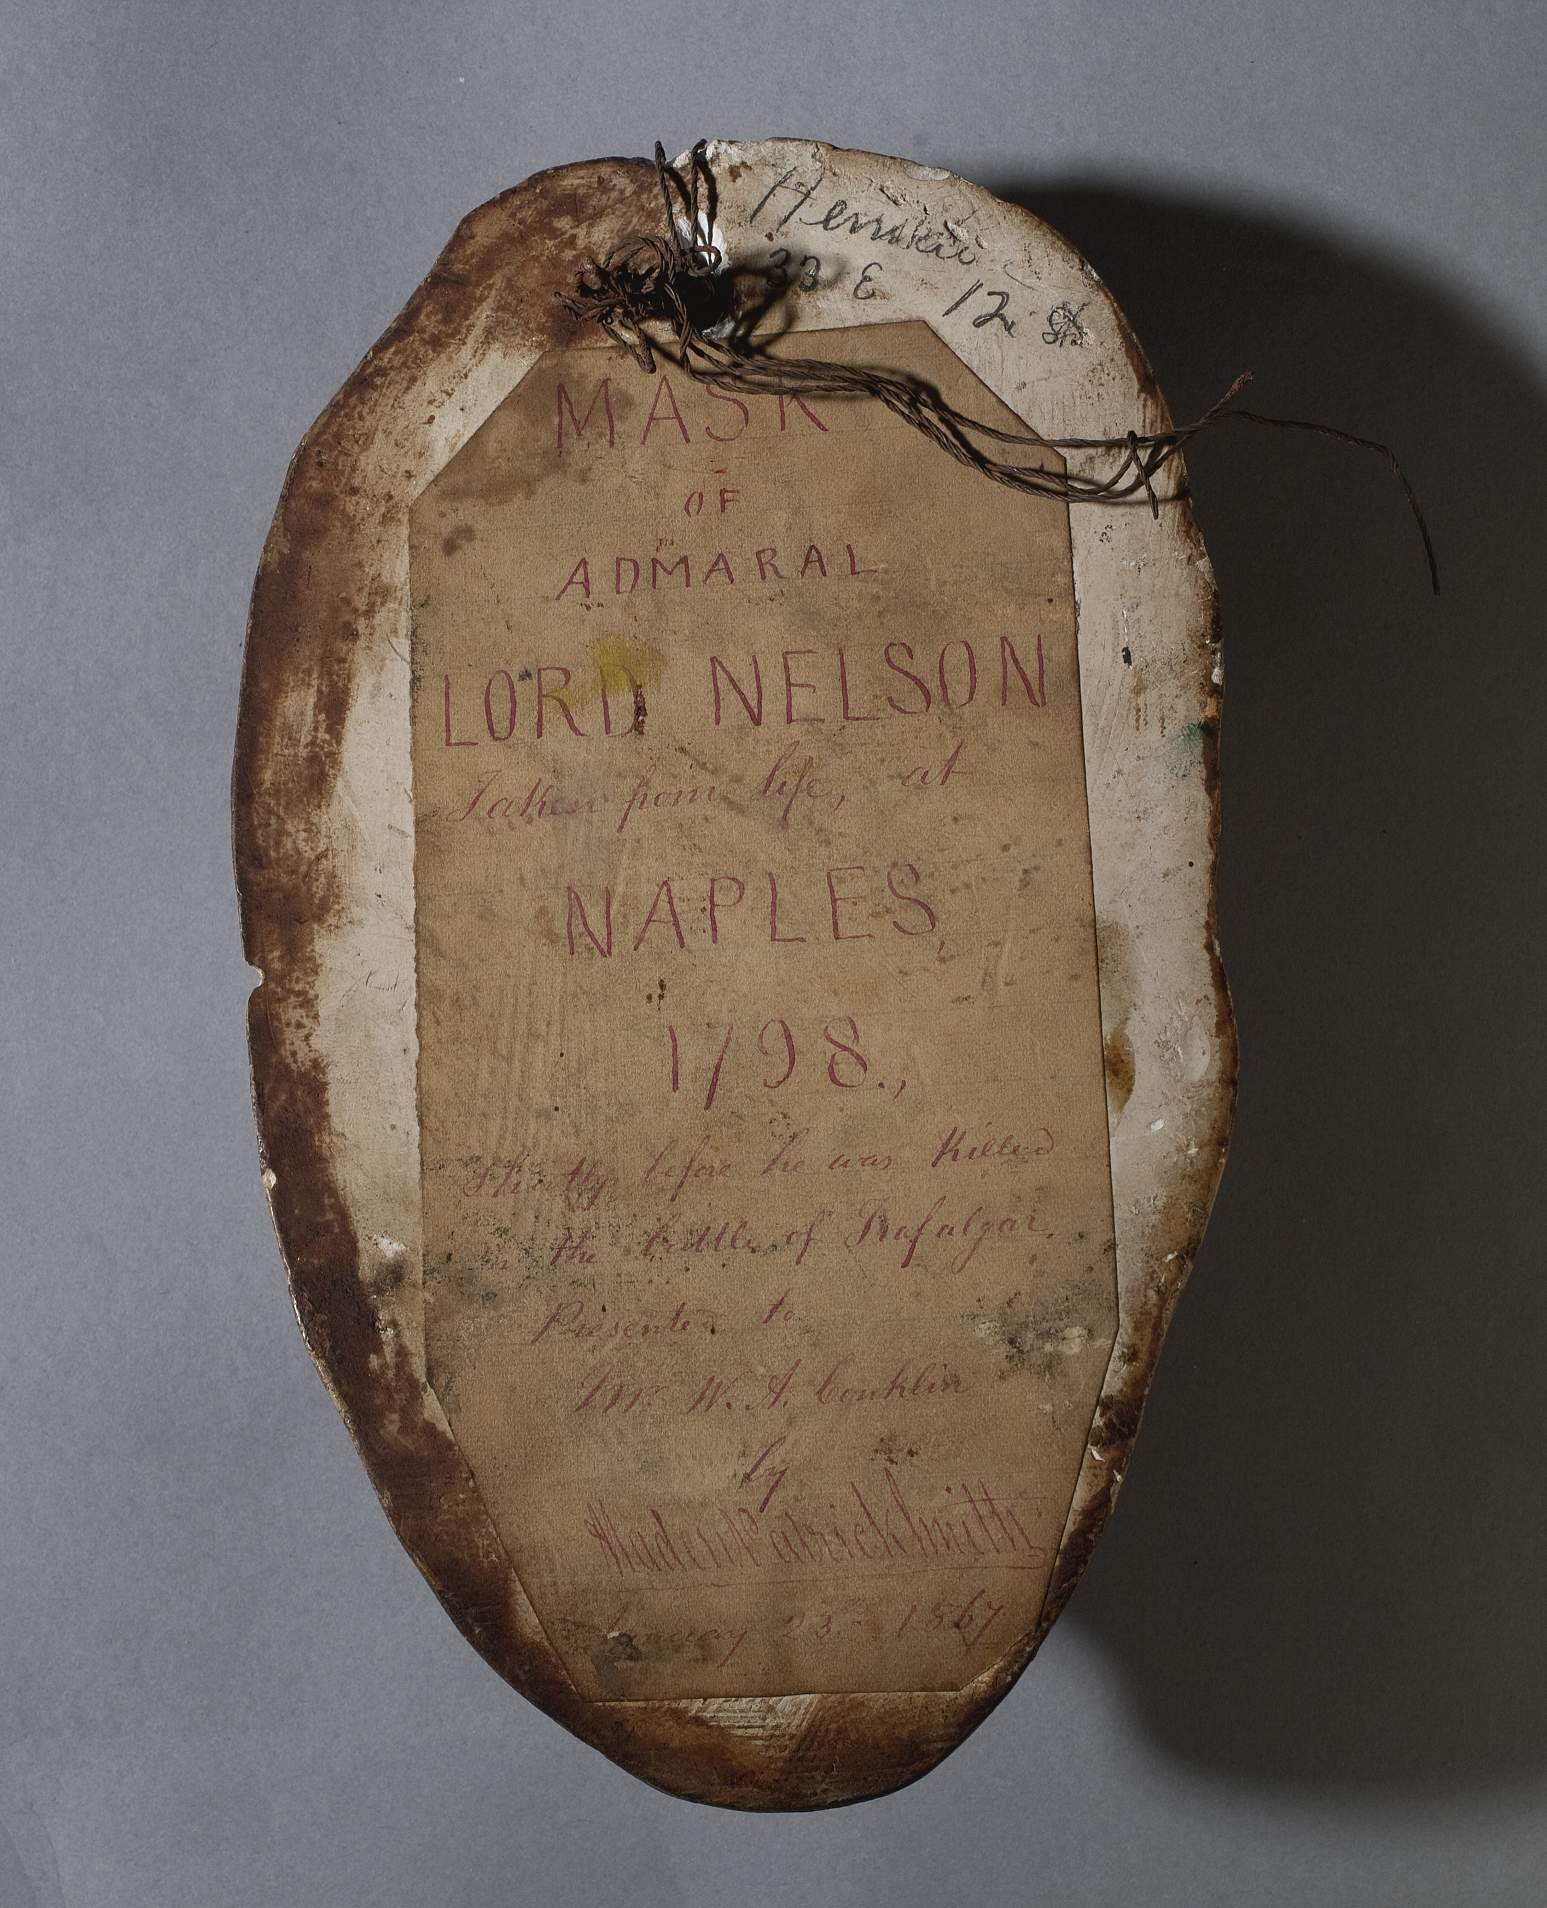 33 E 12 St
MASK
OF
ADMARAL
LORD NELSON
Taken from life, at
NAPLES,
1798.,
Shortly before he was Killed
in the battle of Trafalgar.
Presented to
Mr. W. A. Conklin
by
Smith
January 23 - 1867